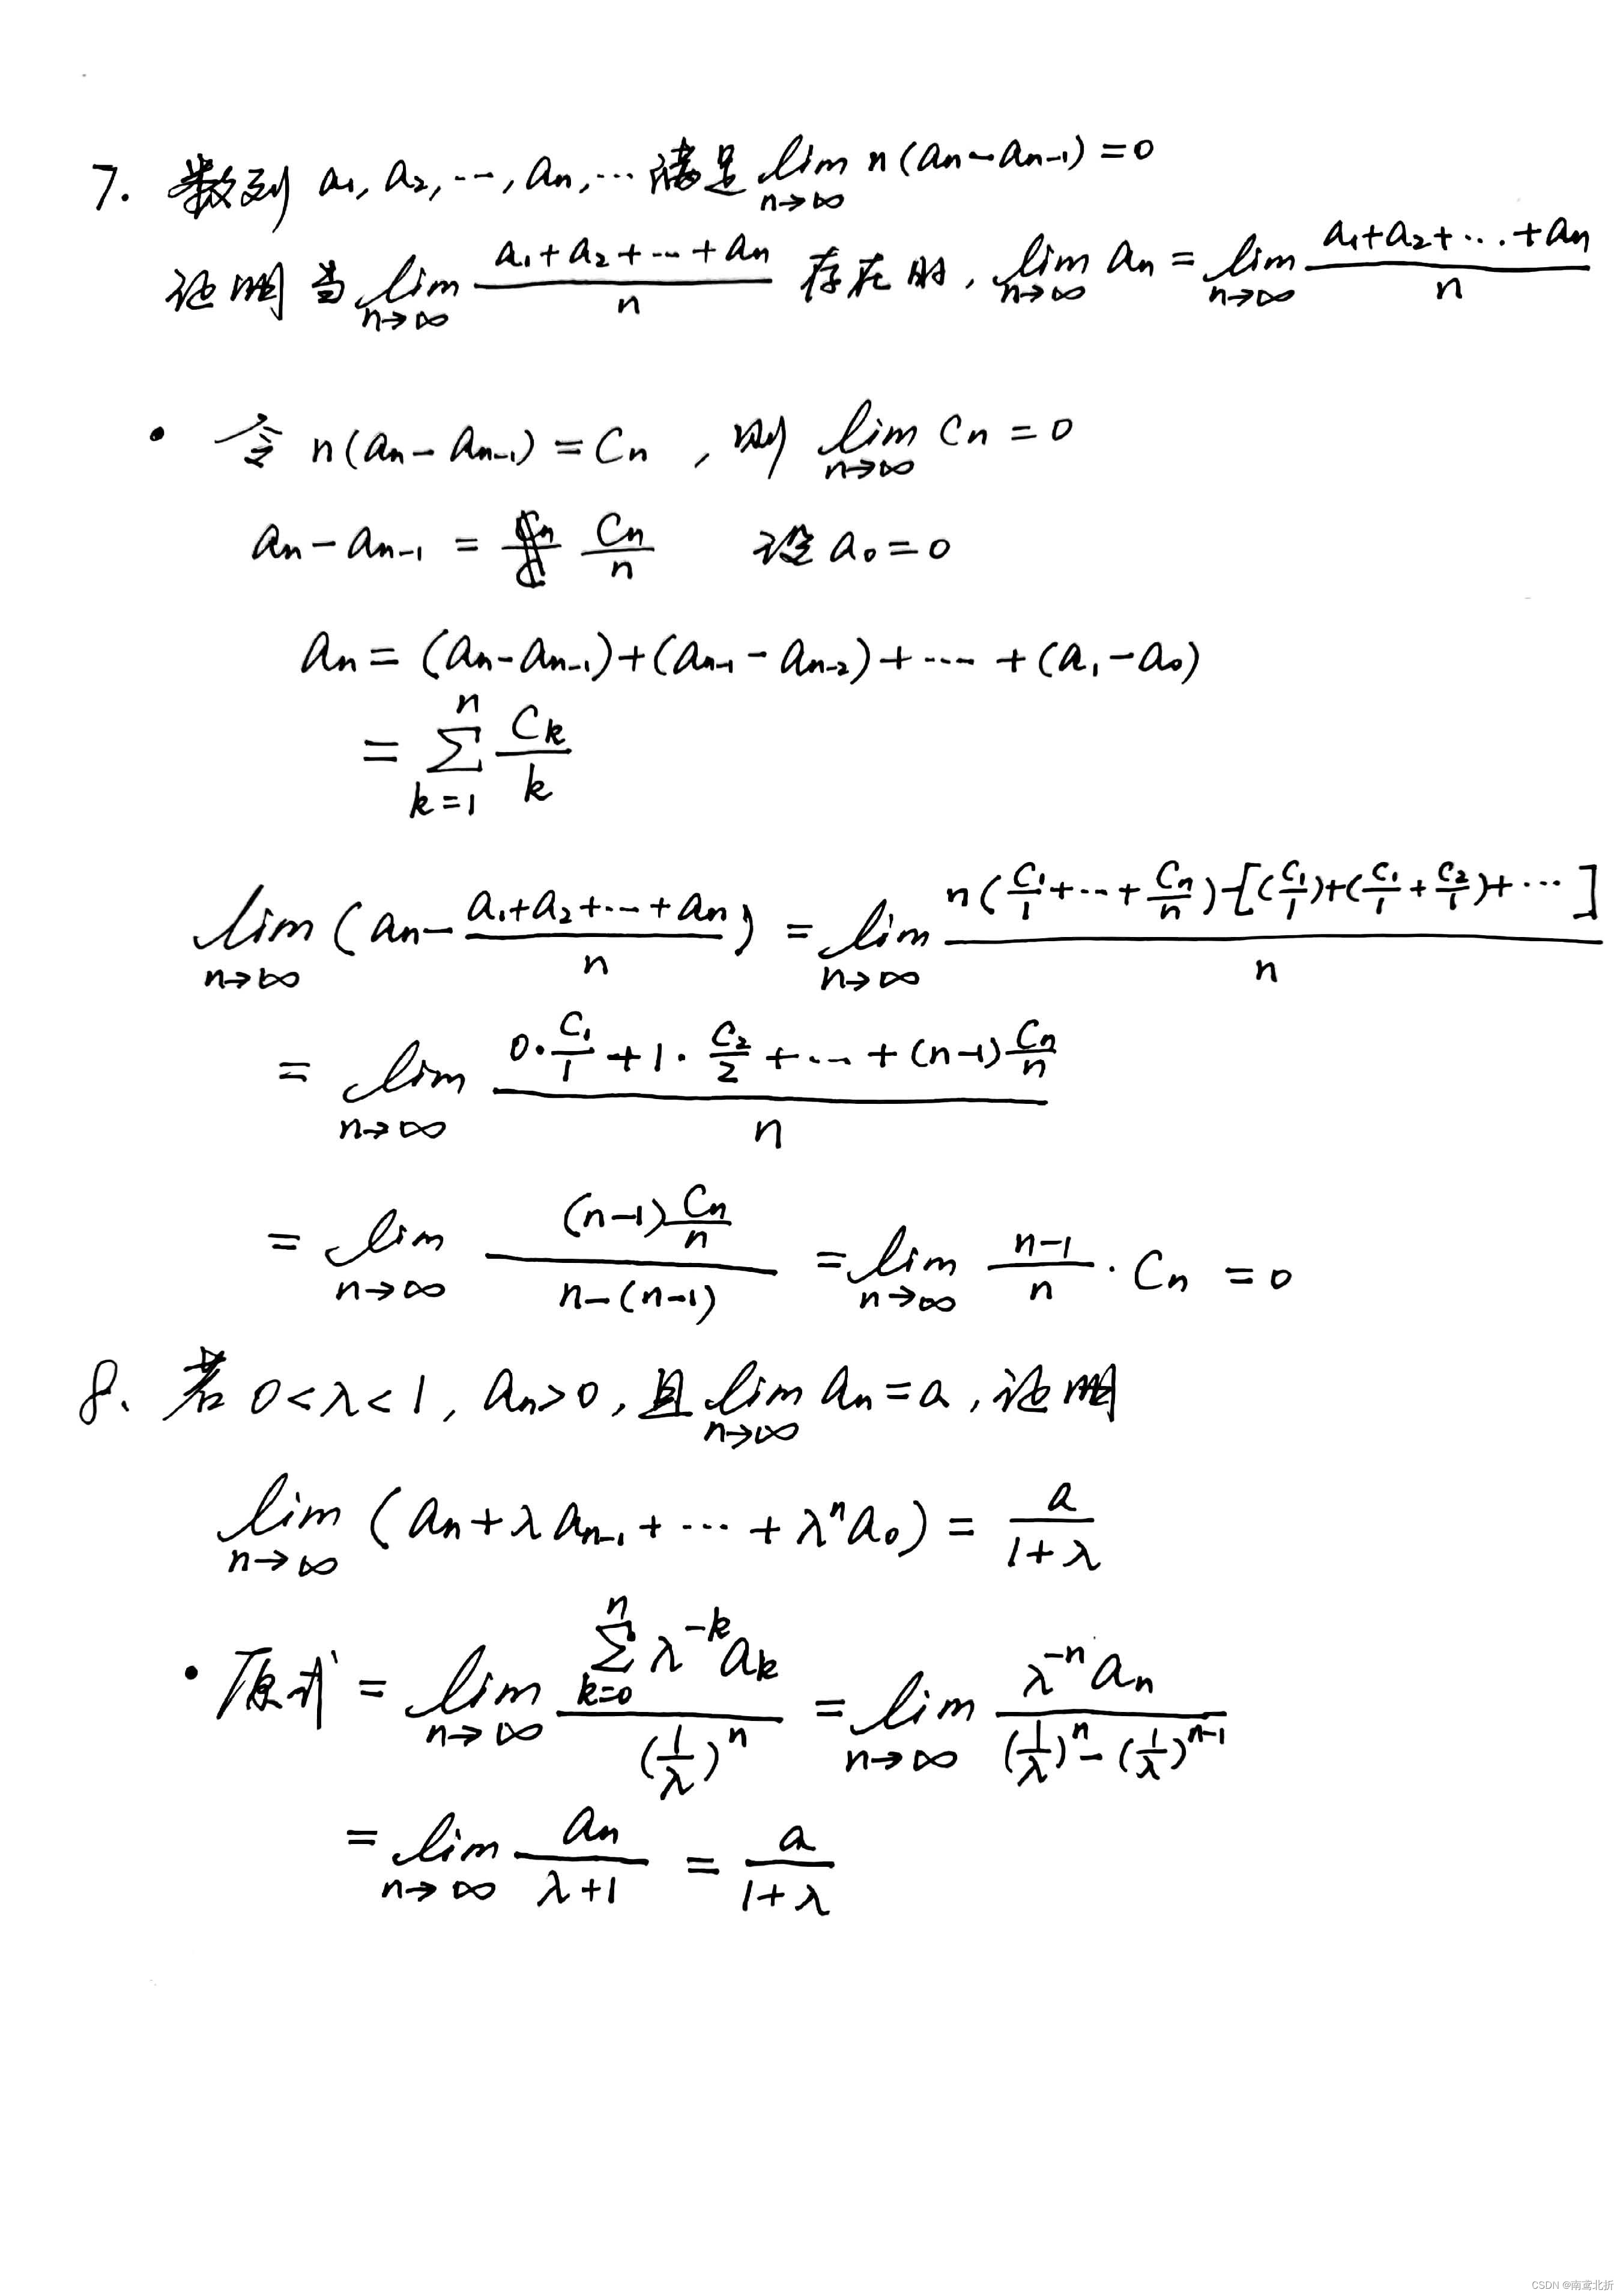 7. 数列 a₁, a₂, ⋯, aₙ, ⋯ 满足 lim_{n→∞} n(aₙ-aₙ₋₁)=0
证明当 lim_{n→∞} (a₁+a₂+⋯+aₙ)/n 存在时, lim_{n→∞} aₙ = lim_{n→∞} (a₁+a₂+⋯+aₙ)/n
· 令 n(aₙ-aₙ₋₁)=Cₙ , 则 lim_{n→∞} Cₙ=0
aₙ-aₙ₋₁ = Cₙ/n 设 a₀=0
aₙ = (aₙ-aₙ₋₁)+(aₙ₋₁-aₙ₋₂)+⋯+(a₁-a₀)
= ∑_{k=1}^{n} C_k/k
lim_{n→∞} (aₙ - (a₁+a₂+⋯+aₙ)/n) = lim_{n→∞} (n(C₁/1+⋯+Cₙ/n)-[(C₁/1)+(C₁/1+C₂/1)+⋯])/n
= lim_{n→∞} (0·C₁/1+1·C₂/2+⋯+(n-1)Cₙ/n)/n
= lim_{n→∞} ((n-1)Cₙ/n)/(n-(n-1)) = lim_{n→∞} (n-1)/n · Cₙ = 0
8. 若 0<λ<1, aₙ>0, 且 lim_{n→∞} aₙ=a, 证明
lim_{n→∞} (aₙ+λaₙ₋₁+⋯+λⁿa₀) = a/(1+λ)
· 原式 = lim_{n→∞} (∑_{k=0}^{n} λ^{-k}a_k)/(1/λ)ⁿ = lim_{n→∞} (λ^{-n}aₙ)/((1/λ)ⁿ-(1/λ)^{n-1})
= lim_{n→∞} aₙ/(λ+1) = a/(1+λ)
CSDN @南鸢北折